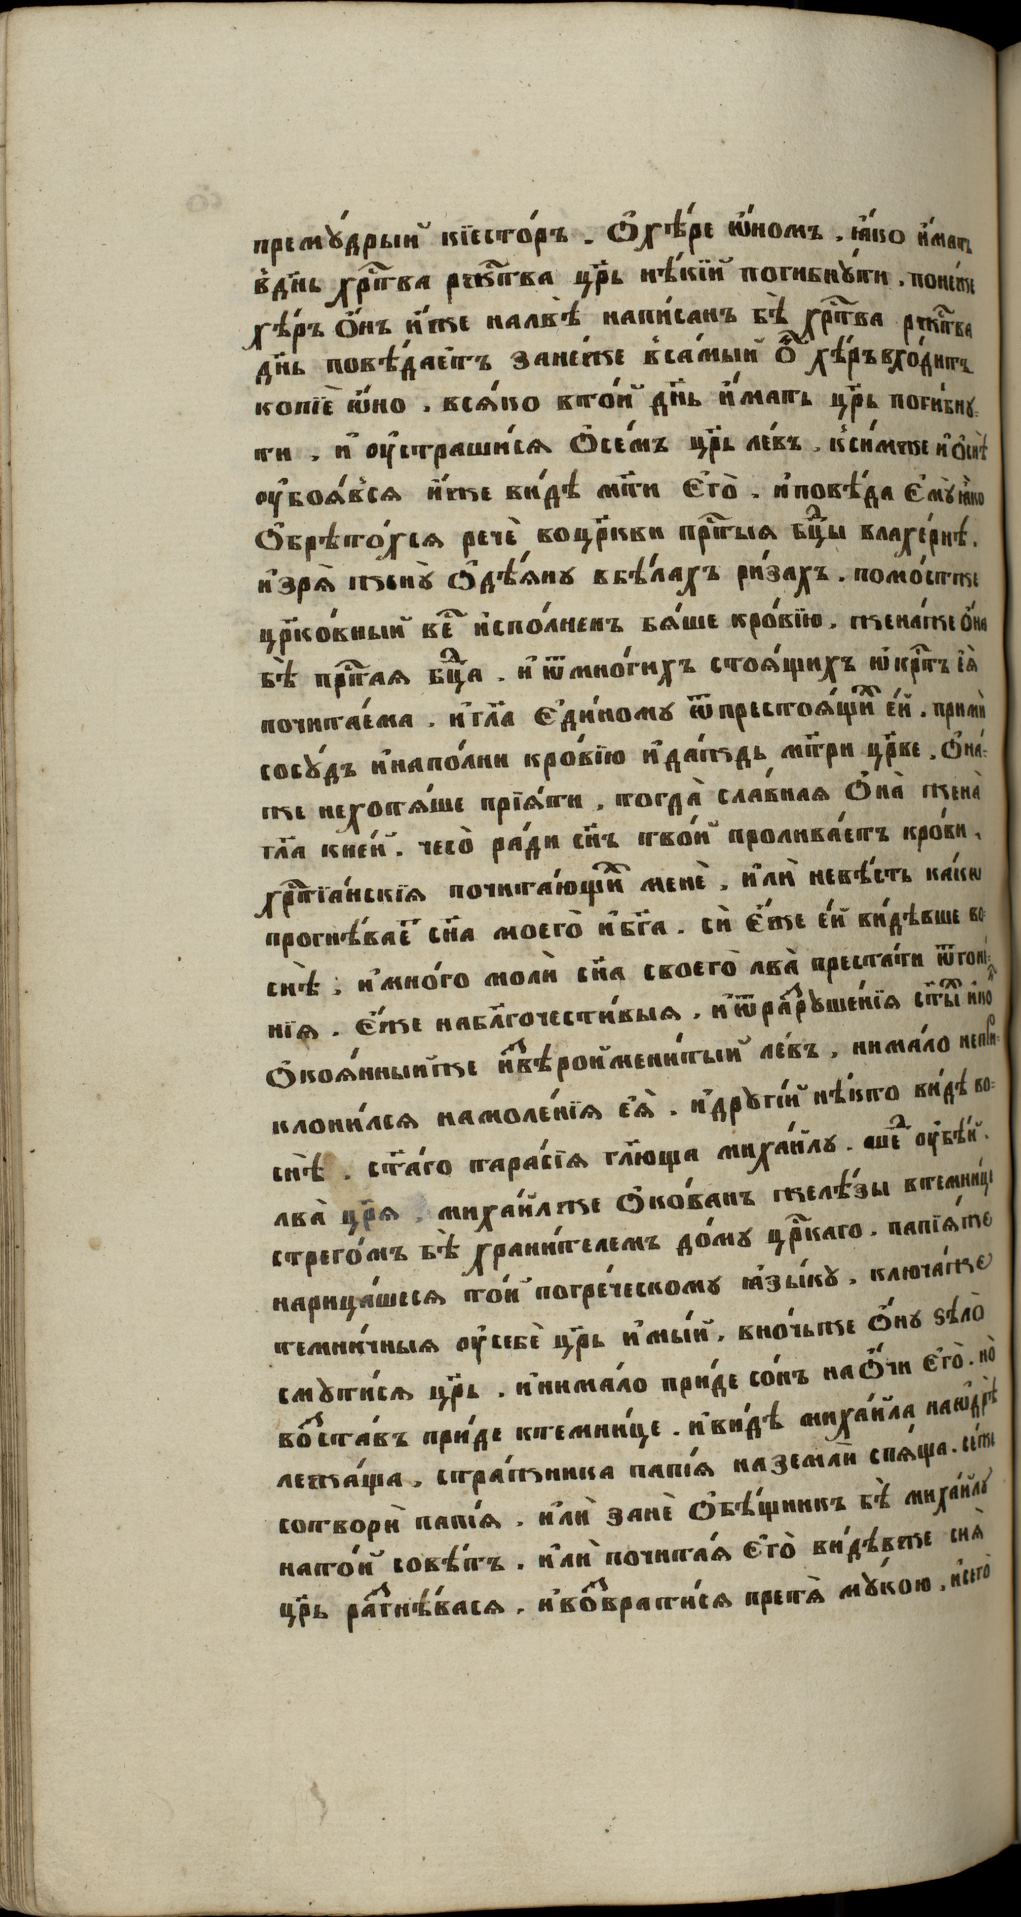 премꙋ́дрый кїесто́ръ . Ѻ҆хѣ́ре ѡ҆́номъ . ꙗ҆́ко и҆́мать
в̾дн҃ь хрⷭ҇тва ржⷭ҇тва цр҃ь нѣ́кїй погибнꙋ́ти , поне́же
хѣ́ръ ѻ҆́нъ и҆́же налвѣ̀ напи́санъ бѣ̀ хрⷭ҇тва ржⷭ҇тва
дн҃ь повѣ́даетъ зане́же в̾са́мый ѻ҆ⷮ хѣ́ръ вхо́дитъ
копїѐ ѡ҆́но . вся́ко вто́й дн҃ь и҆́мать цр҃ь поги́бнꙋ-
ти , и҆ оу҆страши́ся ѻ҆се́мъ цр҃ь ле́въ , к̾си́мже и҆ ѻ҆снѣ̀
оу҆боя́вся и҆́же ви́дѣ мт҃и є҆гѡ̀ . и҆повѣ́да є҆мꙋ̀ ꙗ҆́ко
Ѻ҆брѣто́хся речѐ воцр҃кви прⷭ҇тыя бцⷣы влахе́рнѣ .
и҆зря̀ женꙋ̀ ѻ҆дѣ́янꙋ вбѣ́лахъ ри́захъ . помо́стже
цр҃ко́вный веⷭ҇ и҆спо́лненъ бя́ше кро́вїю , жена́же ѻ҆́на
бѣ̀ прⷭ҇тая бцⷣа . и҆ ѿмно́гихъ стоя́щихъ ѡ҆крⷭ҇тъ є҆я̀
почита́ема . и҆гл҃а є҆ди́номꙋ ѿпрестоя́щиⷯ є҆́й . прїимѝ
сосꙋ́дъ и҆напо́лни кро́вїю и҆да́ждь мт҃ри цр҃ве . Ѻ҆на́-
же нехотя́ше прїя́ти , тогда̀ сла́вная ѻ҆на̀ жена̀
гл҃а кне́й . чесо̀ ра́ди сн҃ъ тво́й пролива́етъ кро́ви ,
хрⷭ҇тїа́нскїя почита́ющиⷯ менѐ , и҆лѝ невѣ́сть ка́кѡ
прогнѣ́ваеⷮ сн҃а моего̀ и҆бг҃а . сѝ є҆́же є҆́й ви́дѣвше во
снѣ̀ ; и҆мно́го молѝ сн҃а своего̀ лва̀ преста́ти ѿгоне́-
нїя . є҆́же набл҃гочести́выя , и҆ѿраⷥрꙋше́нїя ст҃ыⷯ и҆коⷩ҇
Ѻ҆коя́нныйже и҆ⷥвѣ́ройменитый ле́въ , нима́ло непри-
клони́лся намоле́нїя є҆я̀ . и҆дрꙋгі́й нѣ́кто ви́дѣ во-
снѣ̀ . ст҃а́го тара́сїя гл҃юща миха́йлꙋ . оу҆бѣ́й .
лва̀ цр҃я̀ . миха́йлже ѻ҆ко́ванъ желѣ́зы втемни́цѣ
стрего́мъ бѣ̀ храни́телемъ до́мꙋ цр҃каго . папїя́же
нарица́шеся то́й погре́ческомꙋ ꙗ҆зы́кꙋ . ключа́же
темни́чныя оу҆себѐ цр҃ь и҆мы́й . вно́чьже ѻ҆́нꙋ ѕѣлѡ̀
смꙋти́ся цр҃ь . и҆нима́ло прі́иде со́нъ наѻ҆́чи є҆гѡ̀ . но̀
воⷥста́въ прі́иде ктемни́це . и҆ви́дѣ миха́йла наѻ҆дрѣ̀
лежа́ща , стра́жника папі́я наземлѝ спя́ща . се́же
сотворѝ папі́я . и҆лѝ занѐ ѻ҆бѣ́щникъ бѣ̀ миха́йлꙋ
нато́й совѣ́тъ . и҆лѝ почита́я є҆го̀ ви́дѣвже сия̀
цр҃ь раⷥгнѣ́вася . и҆воⷥврати́ся претя̀ мꙋ́кою . и҆сего̀